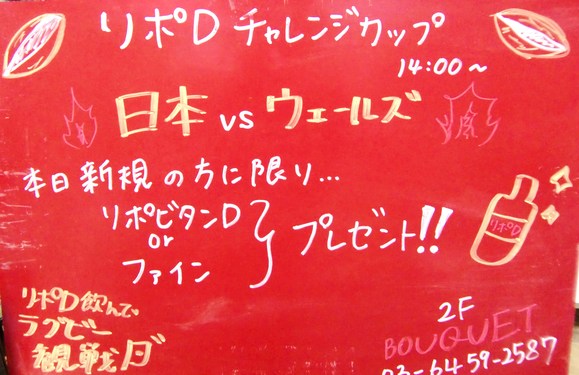 リポDチャレンジカップ
14:00～
日本 vs ウェールズ
本日新規の方に限り…
リポビタンD
or
ファイン
プレゼント!!
リポD
リポD飲んで、
ラグビー
観戦ダ
2F
BOUQUET
03-6459-2587